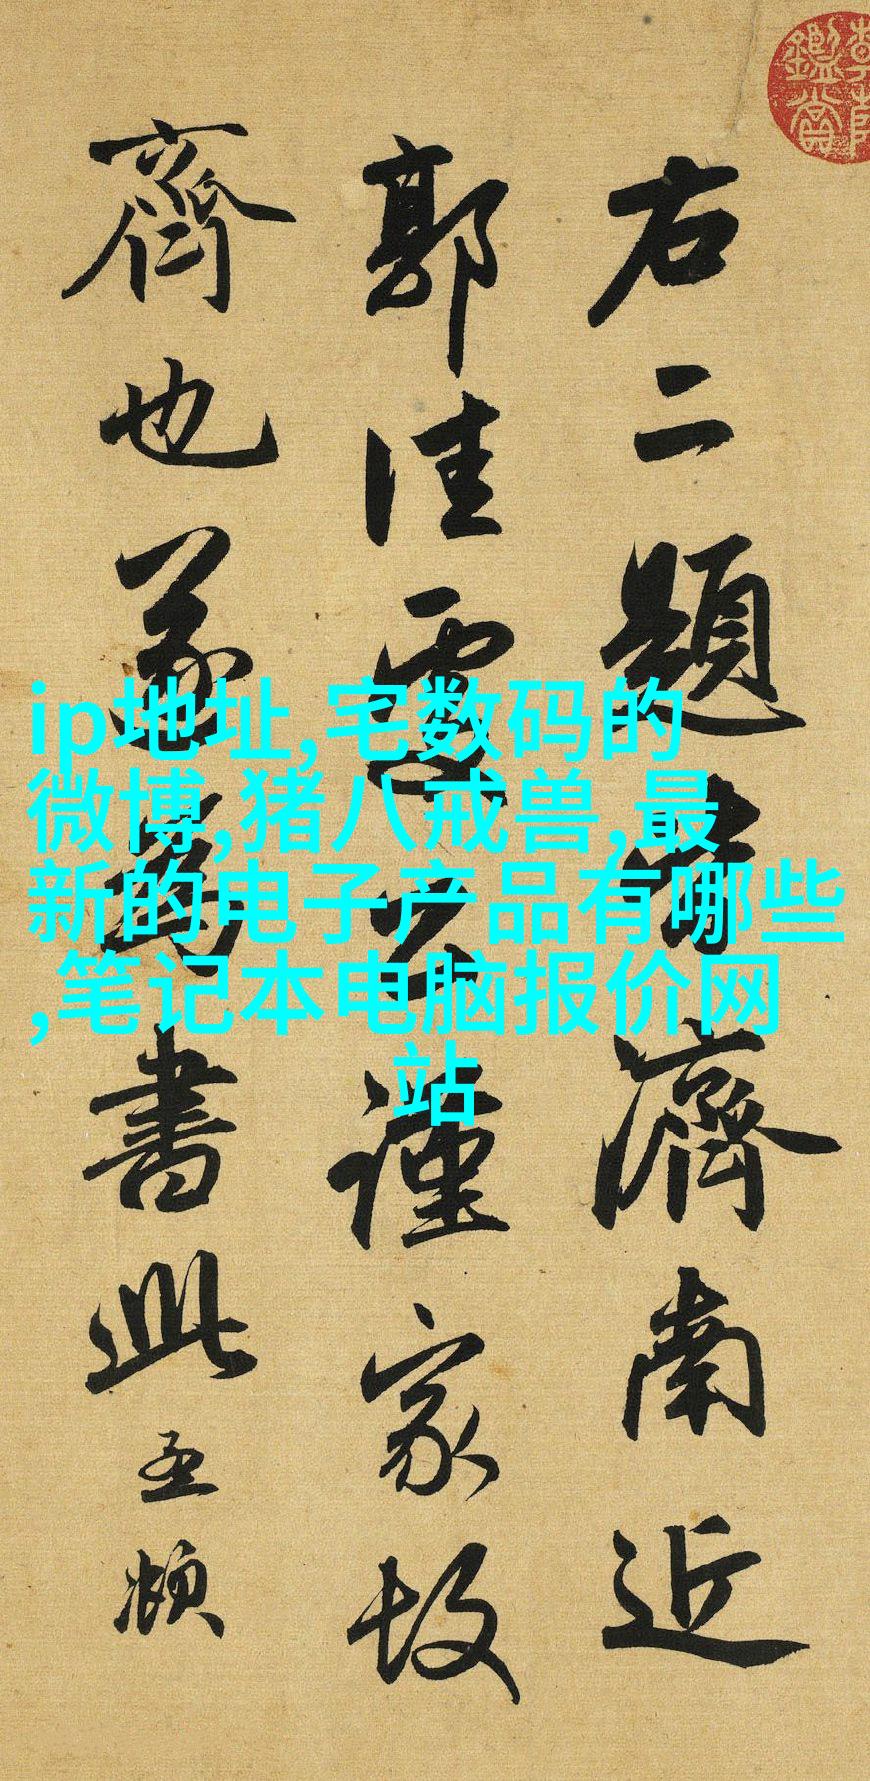 右二題皆濟南近
郭佳處公謹家故
齊也遂為書此孟頫
ip地址,宅数码的
微博,猪八戒兽,最
新的电子产品有哪些
,笔记本电脑报价网
站